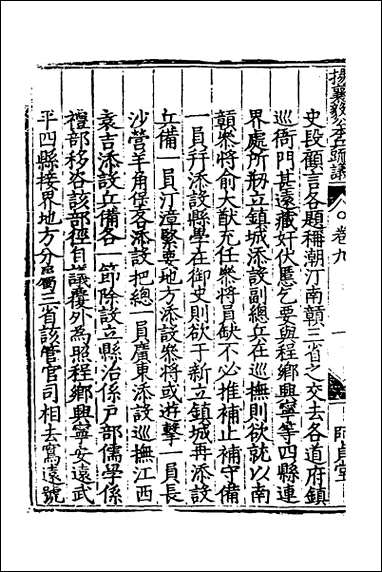 楊襄毅公本兵疏議 卷九 一 師貞堂
史段顧言各題稱潮汀南贛三省之交去各道府鎮
巡衙門甚遠藏奸伏慝乞要與程鄉興寧等四縣連
界處所剏立鎮城添設副總兵在巡撫則欲就以南
贛叅將俞大猷充任叅將員缺不必推補止補守備
一員幷添設縣學在御史則欲于新立鎮城再添設
兵備一員汀漳緊要地方添設叅將或遊擊一員長
沙營羊角堡各添設把總一員廣東添設巡撫江西
袁吉添設兵備各一節除設立縣治係戶部儒學係
禮部移咨該部徑自議覆外為照程鄉興寧安遠武
平四縣接界地方分屬三省該管官司相去寫遠號